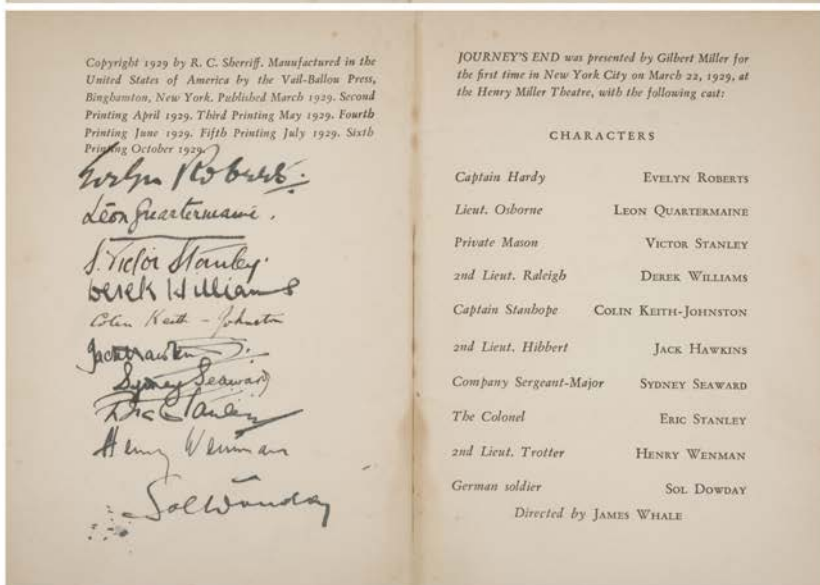 Copyright 1929 by R. C. Sherriff. Manufactured in the
United States of America by the Vail-Ballou Press,
Binghamton, New York. Published March 1929. Second
Printing April 1929. Third Printing May 1929. Fourth
Printing June 1929. Fifth Printing July 1929. Sixth
Printing October 1929.
Evelyn Roberts.
Leon Quartermaine.
S. Victor Stanley.
Derek Williams
Colin Keith-Johnston
Jack Hawkins
Sydney Seaward
Eric Stanley
Henry Wenman
JOURNEY'S END was presented by Gilbert Miller for
the first time in New York City on March 22, 1929, at
the Henry Miller Theatre, with the following cast:
CHARACTERS
Captain Hardy EVELYN ROBERTS
Lieut. Osborne LEON QUARTERMAINE
Private Mason VICTOR STANLEY
2nd Lieut. Raleigh DEREK WILLIAMS
Captain Stanhope COLIN KEITH-JOHNSTON
2nd Lieut. Hibbert JACK HAWKINS
Company Sergeant-Major SYDNEY SEAWARD
The Colonel ERIC STANLEY
2nd Lieut. Trotter HENRY WENMAN
German soldier SOL DOWDAY
Directed by JAMES WHALE